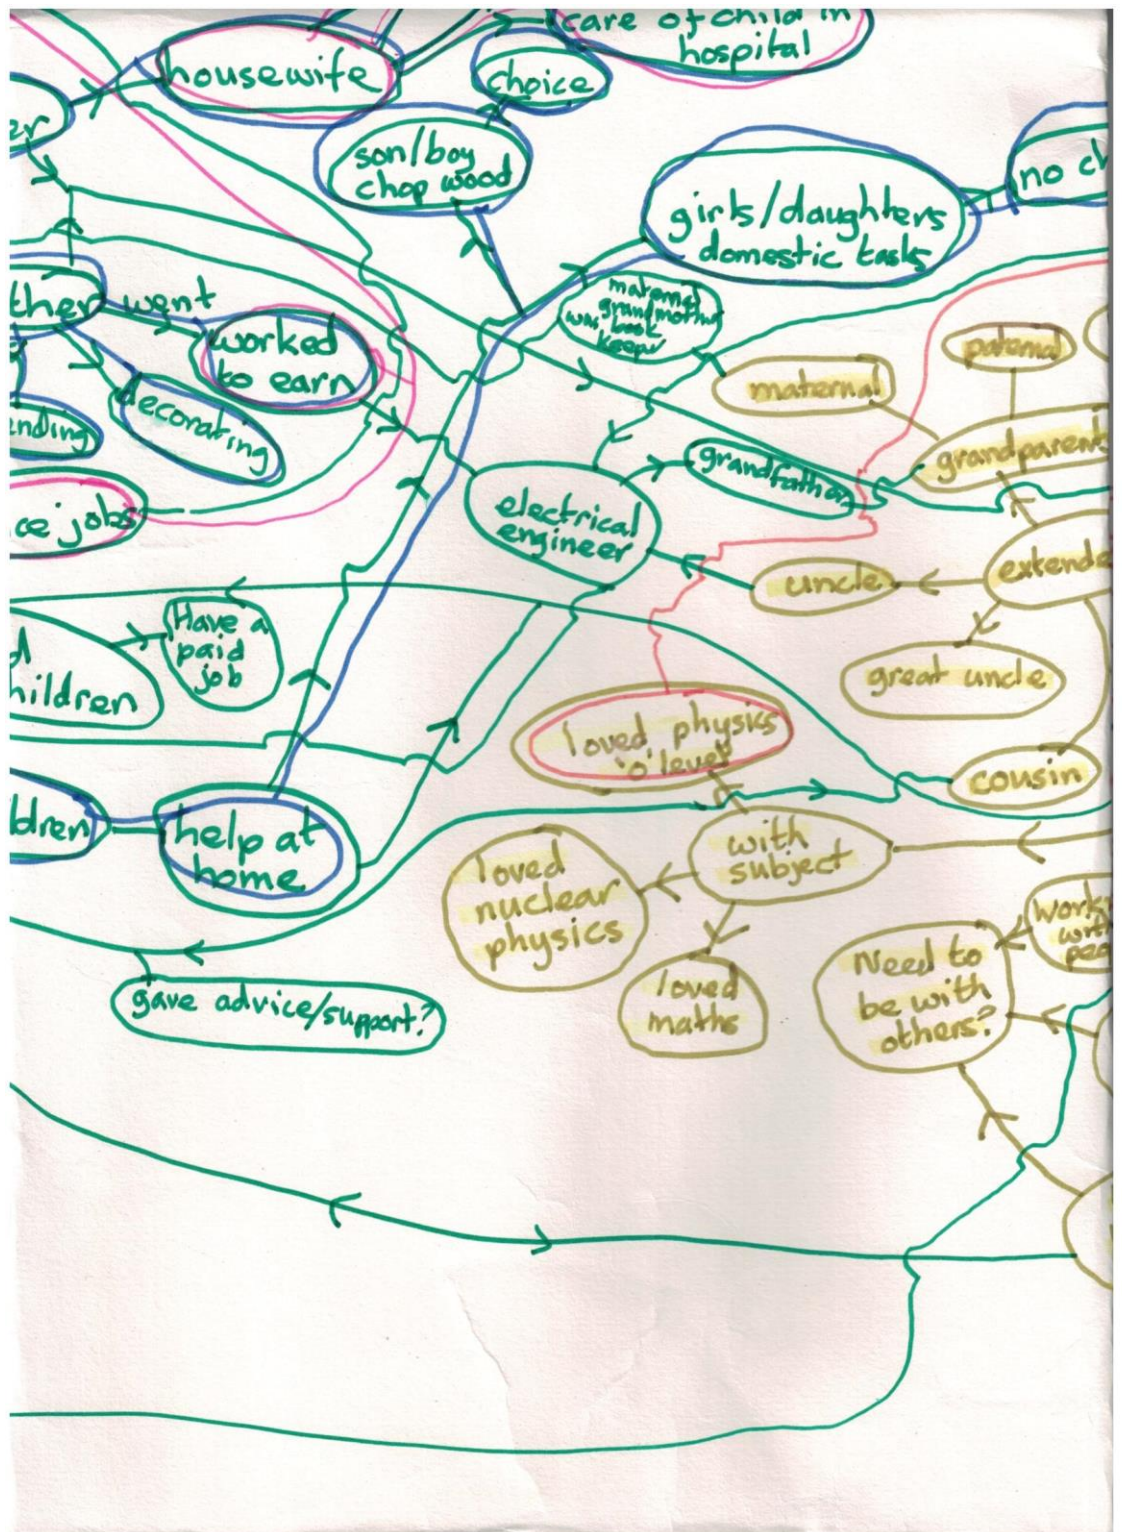 care of child in
hospital
housewife
choice
er
son/boy
chop wood
girls/daughters
domestic tasks
no ch
ther
went
maternal
grandmother
was book
keeper
worked
to earn
paternal
maternal
decorating
ending
grandparent
grandfather
electrical
engineer
ce jobs
uncle
extende
Have a
paid
job
d
hildren
great uncle
loved physics
'o' level
cousin
ldren
help at
home
with
subject
loved
nuclear
physics
work
with
peo
Need to
be with
others?
loved
maths
gave advice/support?